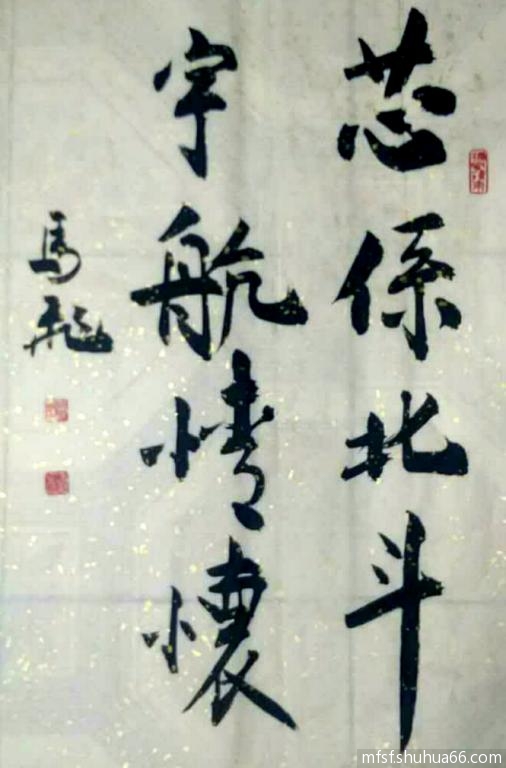 芯係北斗
宇航情懷
馬飛
mfsfshuhua66.com